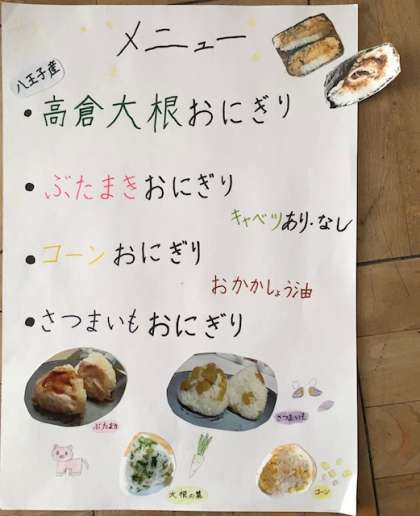 メニュー
八王子産
・高倉大根おにぎり
・ぶたまきおにぎり
キャベツあり・なし
・コーンおにぎり
おかかしょう油
・さつまいもおにぎり
ぶたまき
さつまいも
大根の葉
コーン